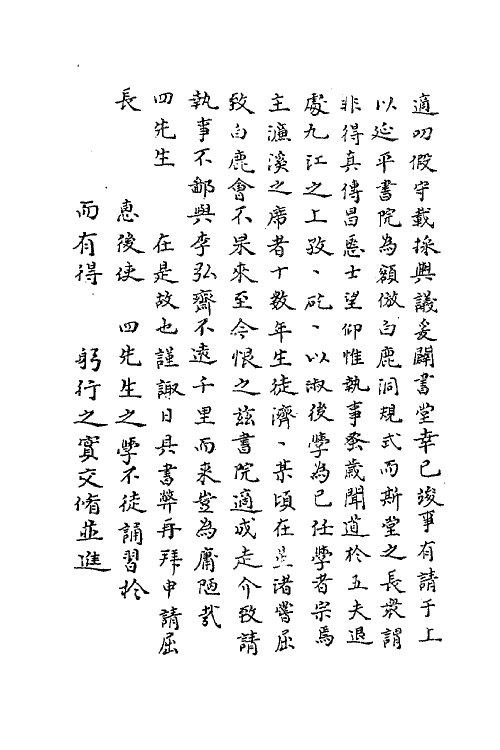 適叨假守載採輿議爰闢書堂幸已竣事有請于上
以延平書院為額倣白鹿洞規式而斯堂之長衆謂
非得真傳曷慰士望仰惟執事蚤歲聞道於五夫退
處九江之上孜、矻、以淑後學為已任學者宗焉
主濂溪之席者十数年生徒濟、某頃在星渚嘗屈
致白鹿會不果來至今恨之兹書院適成走介致請
執事不鄙與李弘齋不遠千里而来豈為庸陋哉
四先生　　在是故也謹諏日具書弊再拜申請屈
長　　恵後使　四先生之學不徒誦習於
而有得　　躬行之實交脩並進